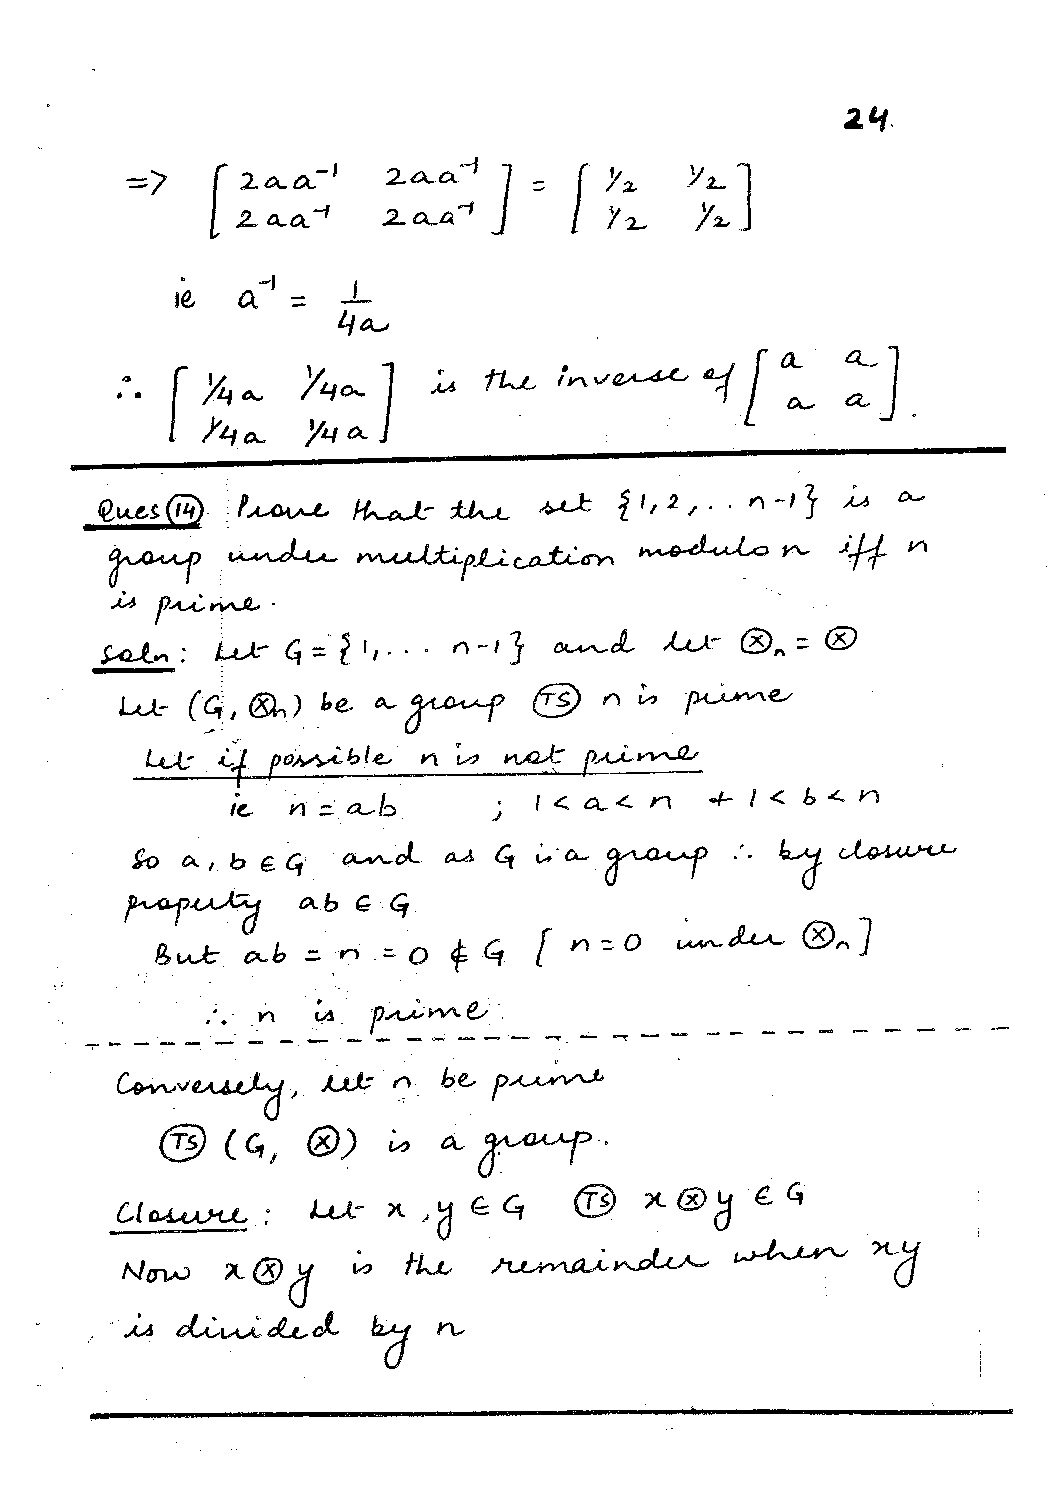 24.
=> [ 2aa⁻¹ 2aa⁻¹ ] = [ 1/2 1/2 ]
[ 2aa⁻¹ 2aa⁻¹ ] [ 1/2 1/2 ]
ie a⁻¹ = 1/4a
∴ [ 1/4a 1/4a ] is the inverse of [ a a ]
[ 1/4a 1/4a ] [ a a ].
Ques (14) Prove that the set {1,2,.. n-1} is a
group under multiplication modulo n iff n
is prime.
Soln: Let G = {1,... n-1} and let ⊗ₙ = ⊗
Let (G, ⊗ₙ) be a group (TS) n is prime
Let if possible n is not prime
ie n = ab ; 1 < a < n + 1 < b < n
So a, b ∈ G and as G is a group ∴ by closure
property ab ∈ G
But ab = n = 0 ∉ G [ n=0 under ⊗ₙ]
∴ n is prime.
Conversely, let n be prime
(TS) (G, ⊗) is a group.
Closure: Let x, y ∈ G (TS) x⊗y ∈ G
Now x⊗y is the remainder when xy
is divided by n